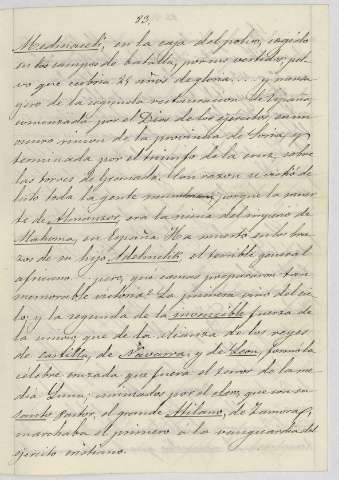 23,
Medinaceli, en la caja del polvo, cogido
en los campos de batalla, por su vestido; pol-
vo que cubria 25 años de gloria. .... y nonsa
gero de la segunda restauracion de España,
comenzada por el Dios de los ejércitos, en un
oscuro rincon de la provincia de Soria, y
terminada por el triunfo de la cruz, sobre
las torres de Granada. Con razon se vistió de
luto toda la gente porque la muer-
te de Almanzor, era la ruina del imperio de
Mahoma, en España Ha muerto en los bra-
zos de su hijo Adelmelik, el terrible general
africano .... pero, que causas prepararon tan
memorable victoria? La primera vino del cie-
lo, y la segunda de la invencible fuerza de
la union, que de la alianza de los reyes
de Castilla, de Navarra, y de Leon, formó la
célebre cruzada que fuera el terror de la me-
dia Luna; animados por el clero, que con su
santo Pastor, el grande Atilano, de Zamora,
marchaba el primero á la vanguardia del
ejército cristiano.